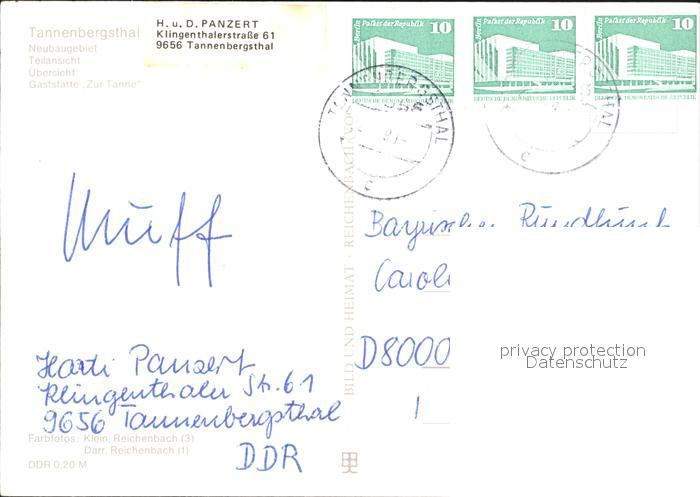 Tannenbergsthal
Neubaugebiet
Teilansicht
Übersicht
Gaststätte „Zur Tanne"
H. u. D. PANZERT
Klingenthalerstraße 61
9656 Tannenbergsthal
Berlin Palast der Republik 10
DEUTSCHE DEMOKRATISCHE REPUBLIK
Berlin Palast der Republik 10
DEUTSCHE DEMOKRATISCHE REPUBLIK
Berlin Palast der Republik 10
DEUTSCHE DEMOKRATISCHE REPUBLIK
TANNENBERGSTHAL
9656
c
c
BILD UND HEIMAT · REICHENBACH
Bayrischer Rundfunk
Caroli
D8000
1
privacy protection
Datenschutz
Hardi Panzert
Klingenthaler Str. 61
9656 Tannenbergsthal
DDR
Farbfotos: Klein, Reichenbach (3)
Darr, Reichenbach (1)
DDR 0,20 M